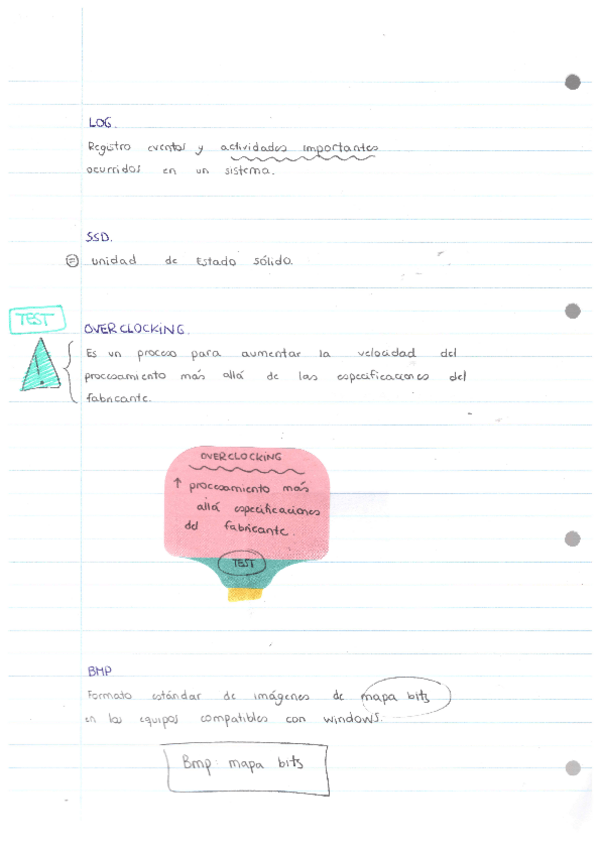 LOG.
Registro eventos y actividades importantes
ocurridos en un sistema.
SSD.
= unidad de Estado sólido.
TEST
OVERCLOCKING.
! Es un proceso para aumentar la velocidad del
procesamiento más allá de las especificaciones del
fabricante.
OVERCLOCKING
↑ procesamiento más
allá especificaciones
del fabricante.
TEST
BMP
Formato estándar de imágenes de mapa bits
en los equipos compatibles con windows.
Bmp: mapa bits